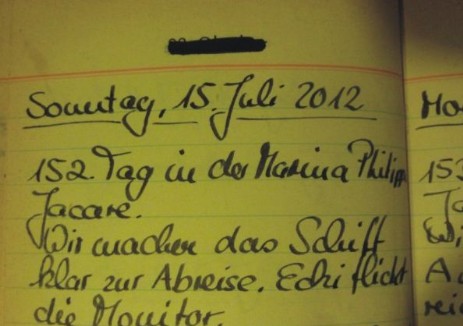 Sonntag, 15. Juli 2012
152. Tag in der Marina Philipp
Jacare.
Wir machen das Schiff
klar zur Abreise. Edzi flickt
die Monitor.
Mo
153
Ja
Wi
A
rei